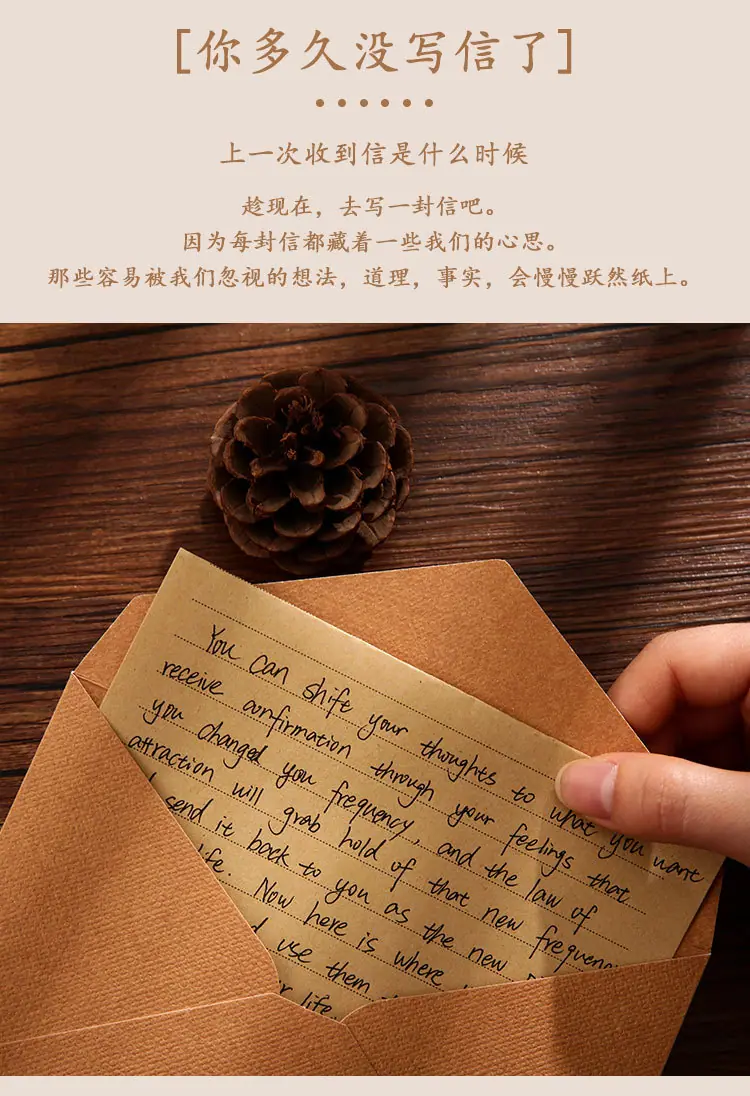 [你多久没写信了]
上一次收到信是什么时候
趁现在，去写一封信吧。
因为每封信都藏着一些我们的心思。
那些容易被我们忽视的想法，道理，事实，会慢慢跃然纸上。
You can shift your thoughts to what you want
receive confirmation through your feelings that
you changed you frequency, and the law of
attraction will grab hold of that new
send it back to you as the new
life. Now here is where
use them
life.